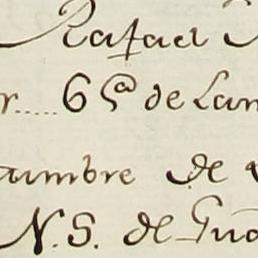 Rafael
r..... 6 5ª de Lan
umbre de
N. S. de Gua